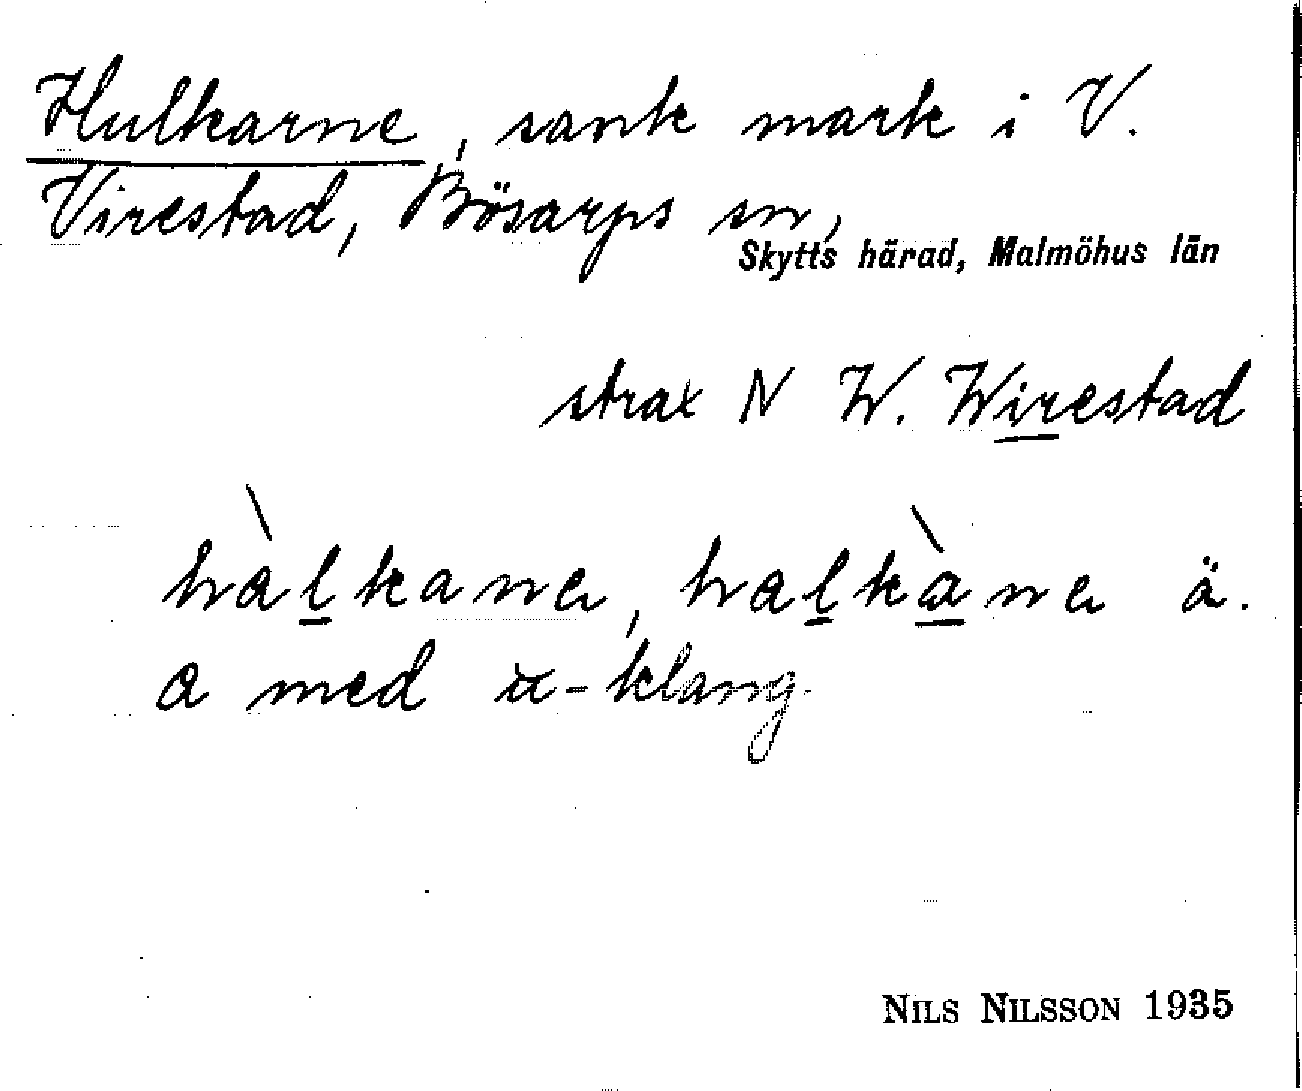 Hulkarne, sank mark i V.
Virestad, Bösarps sn,
Skytts härad, Malmöhus län
strax N W. Wirestad
hàlkana, halkàna ä.
a med u-klang.
NILS NILSSON 1935